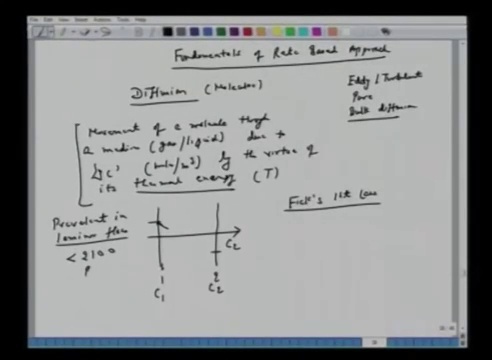 Fundamentals of Rate Based Approach
Diffusion (Molecular)
Eddy / Turbulent
Pore
Bulk diffusion
Movement of a molecule through
a medium (gas/liquid) due to
(mole/m³) by the virtue of
its thermal energy (T)
Fick's 1st Law
Prevalent in
laminar flow
< 2100
C₂
1
2
C₁
C₂